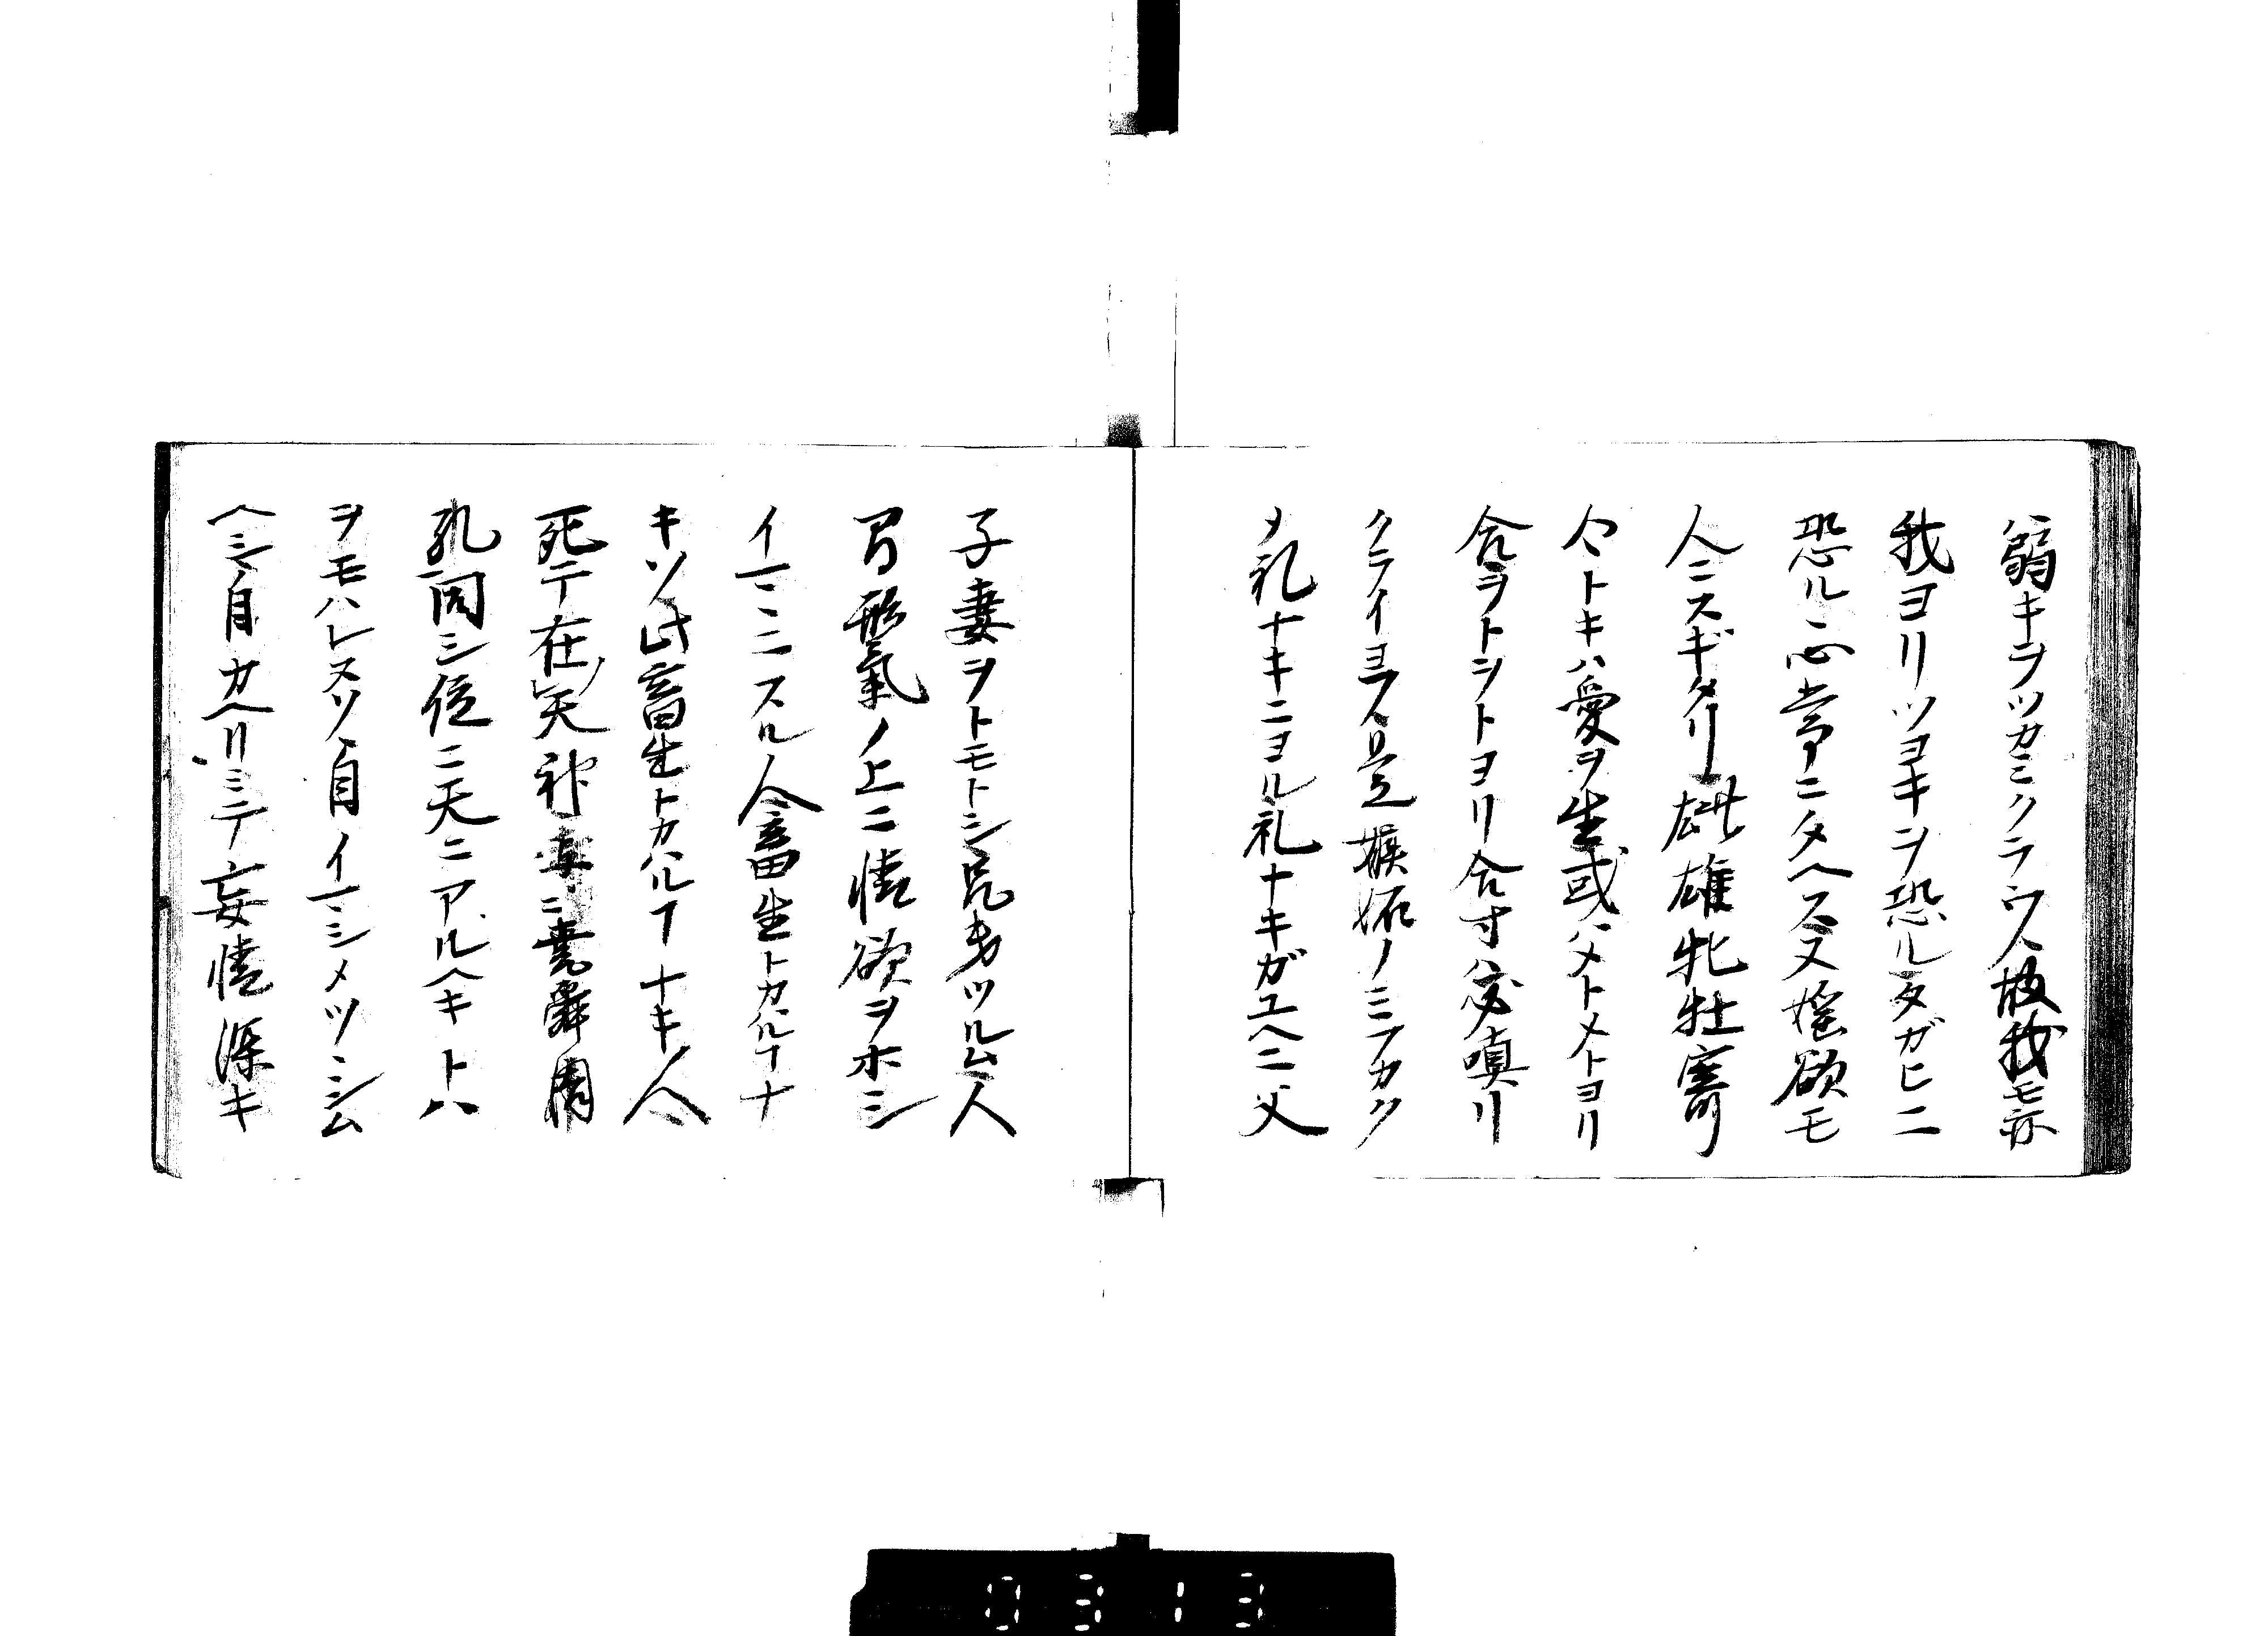 弱キヲツカミクラウ人故我モ亦
我ヨリツヨキヲ恐ルタガヒニ
恐ル心常ニタヘス又婬欲モ
人ニスギタリ雌雄牝牡寄
合トキハ愛ヲ生或ハメトメトヨリ
合ヲトヲトヨリ合寸ハ必嗔リ
クミイヨフ是嫉妬ノミフカク
メ礼ナキニヨル礼ナキガユヘニ父
子妻ヲトモトシ兄弟ツルム人
間形氣ノ上ニ情欲ヲホシ
イマヽニスル人畜生トカハルヿナ
キソ此畜生トカハルヿナキ人
死テ在天神
乱同シ位ニ天ニアルヘキトハ
ヲモハレヌソ自イマシメツヽシム
ヘシ自カヘリミテ妄情深キ
0313